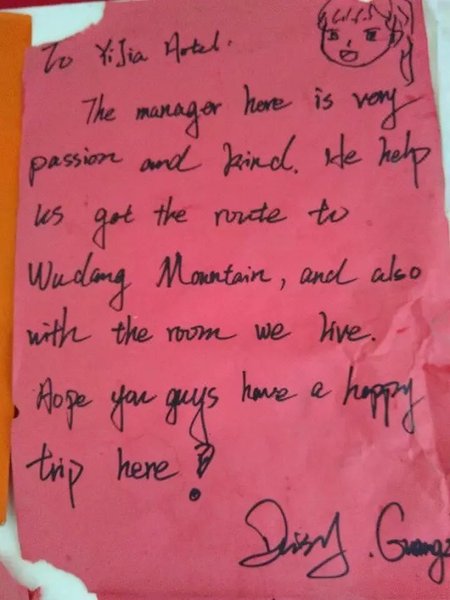 To YiJia Hotel.
The manager here is very
passion and kind. He help
us got the route to
Wudang Mountain, and also
with the room we live.
Hope you guys have a happy
trip here!
Daisy. Guang